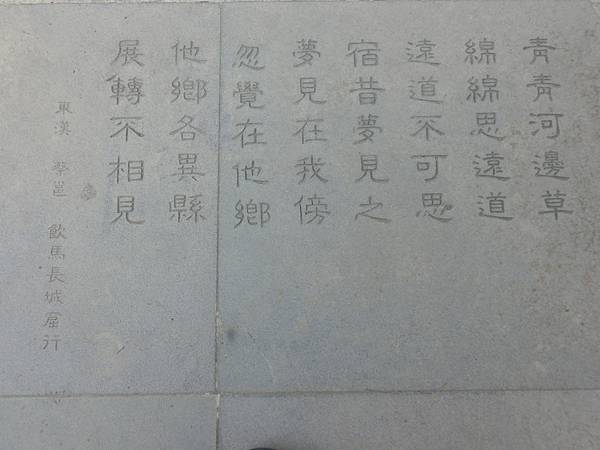 青青河邊草
綿綿思遠道
遠道不可思
宿昔夢見之
夢見在我傍
忽覺在他鄉
他鄉各異縣
展轉不相見
東漢 蔡邕 飲馬長城窟行